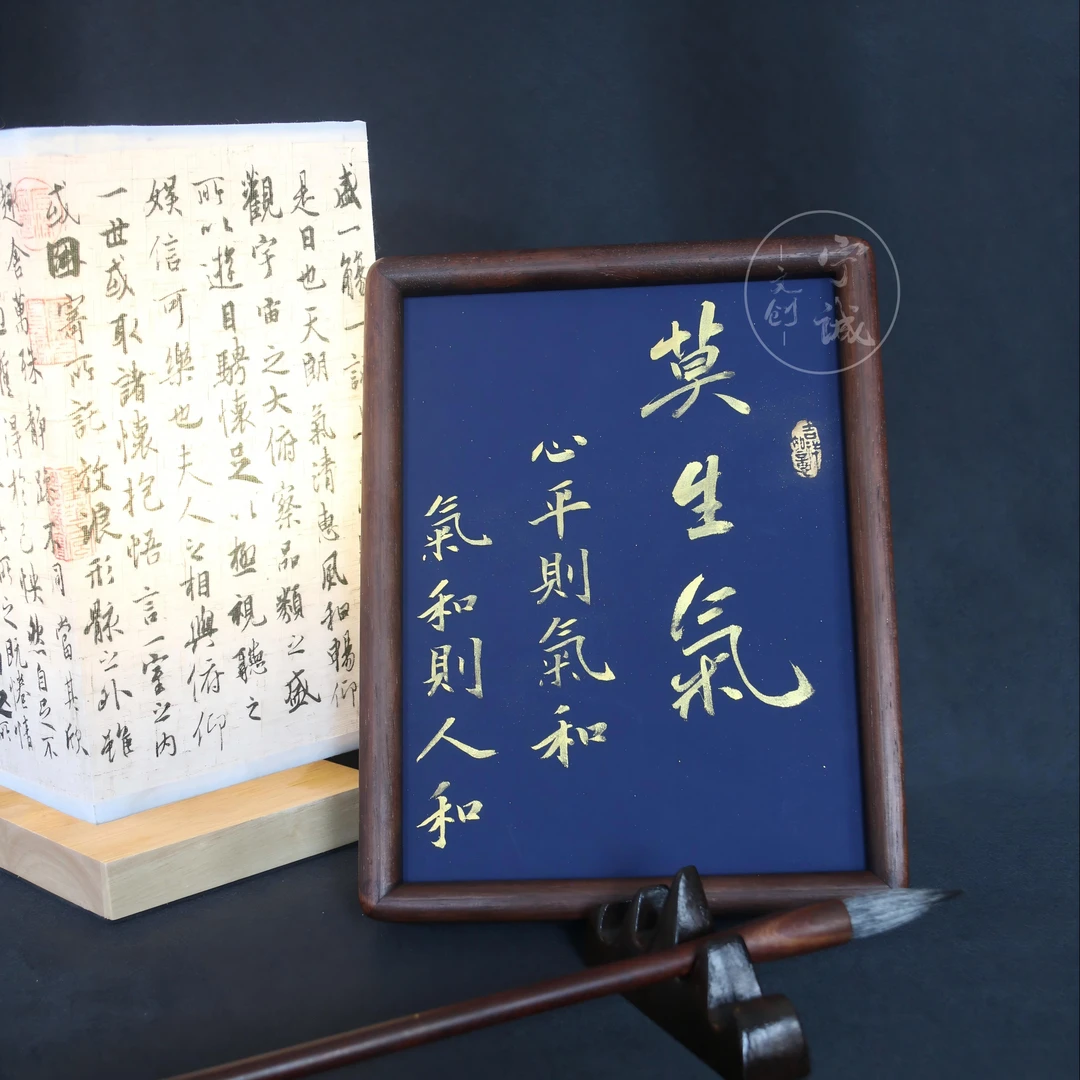 莫生氣
心平則氣和
氣和則人和
吉祥如意
文创
盛一觴一
是日也天朗氣清惠風和暢仰
觀宇宙之大俯察品類之盛
所以遊目騁懷足以極視聽之
娛信可樂也夫人之相與俯仰
一世或取諸懷抱悟言一室之內
或因寄所託放浪形骸之外雖
趣舍萬殊靜躁不同當其欣
得於己快然自足不
之既惓情